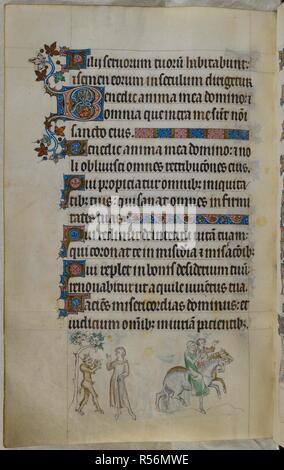 Filii seruorum tuorum habitabunt:
et semen eorum in seculum dirigetur
Benedic anima mea domino: et
omnia que intra me sunt nomini
sancto eius.
Benedic anima mea domino: et no
li obliuisci omnes retribuciones eius.
Qui propiciatur omnibus iniquita
tibus tuis: qui sanat omnes infirmi
tates tuas.
Qui redimit de interitu uitam tuam:
qui coronat te in misericordia
Qui replet in bonis desiderium tuum:
renouabitur ut aquile iuuentus tua
Faciens misericordias dominus: et
iudicium omnibus iniuriam pacientibus
alamy
Image ID: R56MWE
www.alamy.com